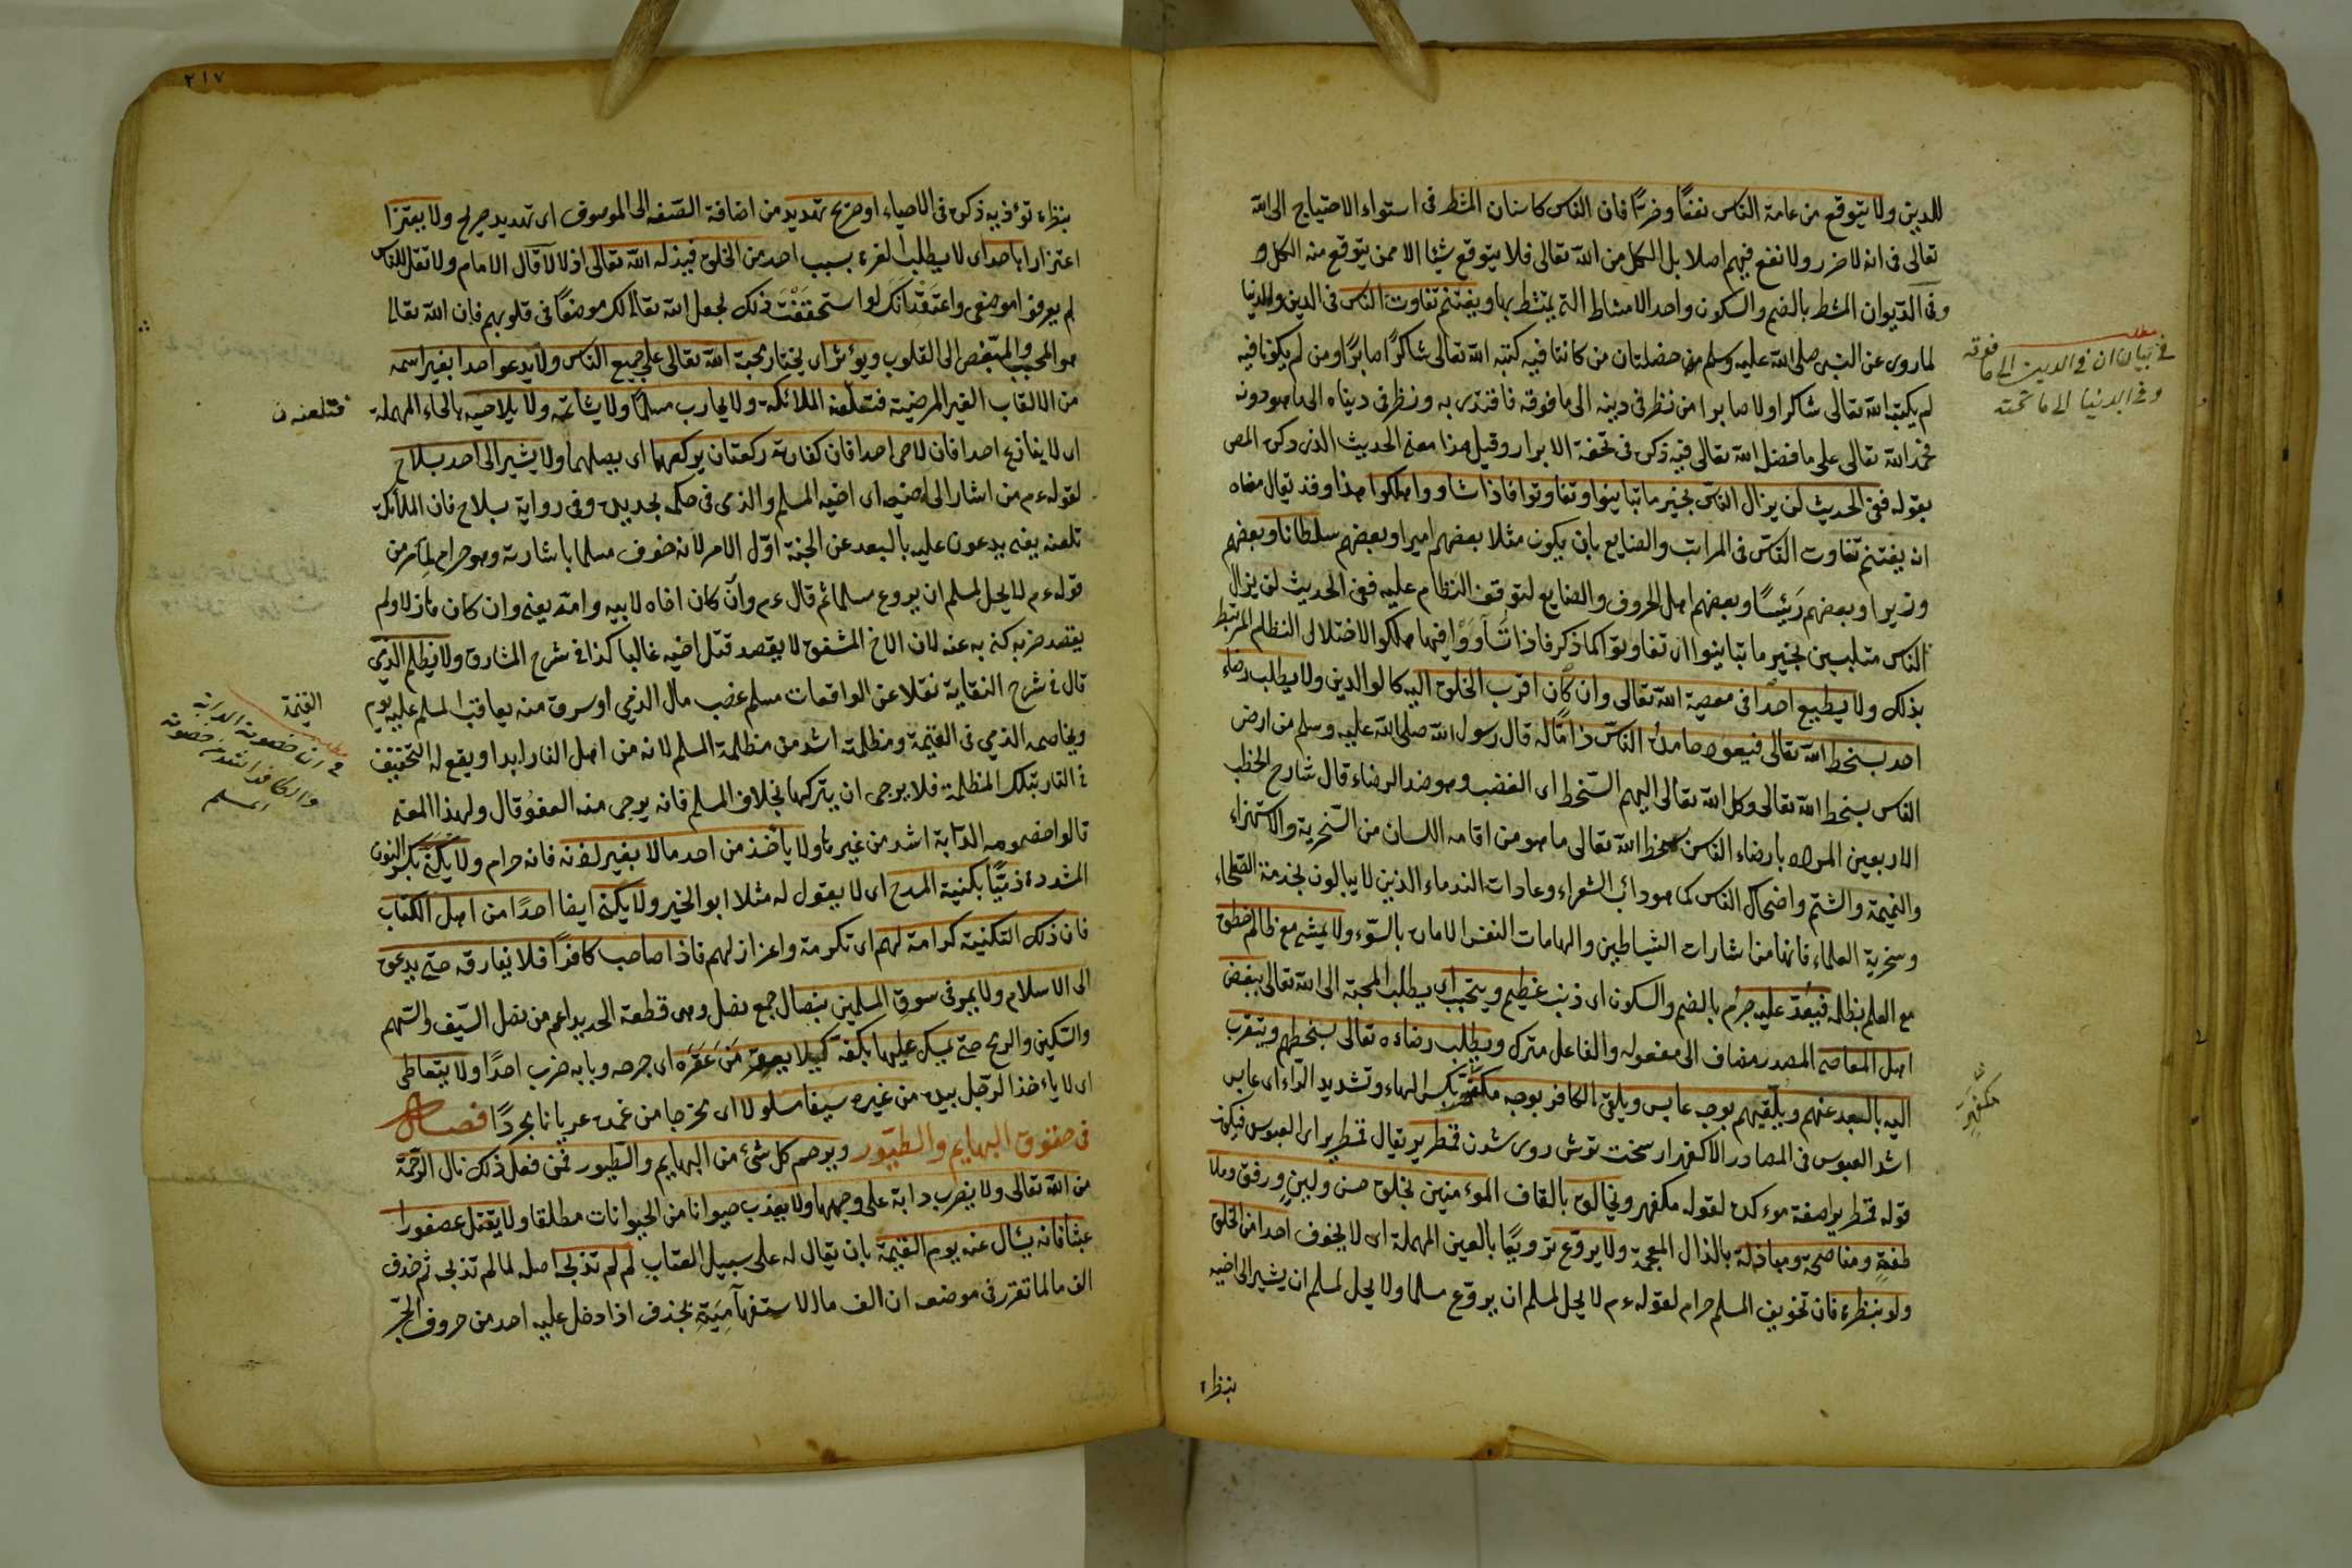 للدين ولا يتوقع من عامة الناس نفعًا وضرًا فان الناس كاسنان المشط فى استواء الاحتياج الى الله
تعالى فى انه لا ضرر ولا نفع فيهم اصلا بل الكل من الله تعالى فلا يتوقع شيئا الا ممن يتوقع منه الكل و
وفى الديوان المشط بالضم والسكون واحد الامشاط التى يمتشط بها ويغتنم تفاوت الناس فى الدين والدنيا
لما روى عن النبى صلى الله عليه وسلم خصلتان من كانتا فيه كتبه الله تعالى شاكرًا صابرًا ومن لم يكونا فيه
لم يكتبه الله تعالى شاكرا ولا صابرا من نظر فى دينه الى ما فوقه فاقتدى به ونظر فى دنياه الى ما هو دونه
فحمد الله تعالى على ما فضل الله تعالى فيه ذكره فى تحفة الابرار وقيل هذا معنى الحديث الذى ذكره المص
بقوله ففى الحديث لن يزال الناس بخير ما تباينوا وتفاوتوا فاذا تساووا هلكوا هذا وقد يقال معناه
ان يغتنم تفاوت الناس فى المراتب والصنايع بان يكون مثلا بعضهم اميرا وبعضهم سلطانا وبعضهم
وزيرا وبعضهم رئيسًا وبعضهم اهل الحروف والصنايع لتوقف النظام عليه ففى الحديث لن يزال
الناس متلبسين بخير ما تباينوا اى تفاوتوا كما ذكر فاذا تساووا فيها هلكوا لاختلال النظام المرتبط
بذلك ولا يطيع احدا فى معصية الله تعالى وان كان اقرب الخلق اليه كالوالدين ولا يطلب رضاء
احد بسخط الله تعالى فيعود حامده الناس ذامًا له قال رسول الله صلى الله عليه وسلم من ارضى
الناس بسخط الله تعالى وكل الله تعالى اليهم السخط اى الغضب وهو ضد الرضاء قال شارح الخطب
الاربعين المراد بارضاء الناس بسخط الله تعالى ما هو من اقامه اللسان من السخرية والاستهزاء
والنميمة والشتم واضحاك الناس كما هو دائب الشعراء وعادات الندماء الذين لا يبالون بخدمة الصلحاء
وسخرية العلماء فانها من اشارات الشياطين والهامات النفس الامارة بالسوء ولا يمشى مع ظالم خطوة
مع العلم بظلمه فيعد عليه جرم بالضم والسكون اى ذنب عظيم ويتحبب اى يطلب المحبة الى الله تعالى ببغض
اهل المعاصى المصدر مضاف الى مفعوله والفاعل متروك ويطلب رضاءه تعالى بسخطهم ويتقرب
اليه بالبعد عنهم ويلقيهم بوجه عابس ويلقى الكافر بوجه مكفهر بكسر الهاء وتشديد الراء اى عابس
اشد العبوس فى المصادر الاكفهرار سخت ترش روى شدن قمطرير يقال قمطرير اى العبوس فيكون
قوله قمطرير اصفة موءكدة لقوله مكفهر ويخالق بالقاف الموءمنين بخلق حسن ولين ورفق وملا
طفة ومناصحة ومباذلة بالذال المعجمة ولا يروع ترويعًا بالعين المهملة اى لا يخوف احدا من الخلق
ولو بنظرة فان تخويف المسلم حرام لقوله عم لا يحل لمسلم ان يروع مسلما ولا يحل لمسلم ان يشير الى اخيه
بنظرة
فى بيان ان فى الدين الى ما فوقه
وفى الدنيا الى ما تحته
مكفهر
٢١٧
بنظرة تؤذيه ذكره فى الاحياء او صريح تهديد من اضافة الصفه الى الموصوف اى تهديد صريح ولا يعتز
اعتزازا باحد اى لا يطلب العزة بسبب احد من الخلق فيذله الله تعالى اذلالا قال الامام ولا تقل للناس
لم يعرفوا موضعى واعتقد انك لو استحققت ذلك لجعل الله تعالى لك موضعًا فى قلوبهم فان الله تعالى
هو المحبب والمبغض الى القلوب ويؤثر اى يختار محبة الله تعالى على جميع الناس ولا يدعو احدا بغير اسمه
من الالقاب الغير المرضية فتلعنه الملائكة ولا يحارب مسلمًا ولا يشاتمه ولا يلاحيه بالحاء المهملة
اى لا ينازع احدا فان لاحى احدا فان كفارته ركعتان يركعهما اى يصليهما ولا يشير الى احد بسلاح
لقوله عم من اشار الى اخيه اى اخيه المسلم والذمى فى حكمه بحديدة وفى رواية بسلاح فان الملائكة
تلعنه يعنى يدعون عليه بالبعد عن الجنة اول الامر لانه خوف مسلما باشارته وهو حرام لما مر من
قوله عم لا يحل لمسلم ان يروع مسلما ثم قال عم وان كان اخاه لابيه وامه يعنى وان كان هازلا ولم
يقصد ضربه كنى به عنه لان الاخ المشفق لا يقصد قتل اخيه غالبا كذا فى شرح المشارق ولا يظلم الذمى
قال فى شرح النقاية نقلا عن الواقعات مسلم غصب مال الذمى او سرق منه يعاقب المسلم عليه يوم
القيمة
ويخاصمه الذمى فى القيمة ومظلمته اشد من مظلمة المسلم لانه من اهل النار ابدا ويقع له التخفيف
فى النار بتلك المظلمة فلا يرجى ان يتركها بخلاف المسلم فانه يرجى منه العفو قال ولهذا المعنى
قالوا خصومة الدابة اشد من غيرها ولا يأخذ من احد مالا بغير لانه فانه حرام ولا يكنى بكسر النون
المشددة ذميًا بكنية المدح اى لا يقول له مثلا ابو الخير ولا يكنى ايضا احدًا من اهل الكتاب
فان ذلك التكنية كرامة لهم اى تكرمة واعزاز لهم فاذا صاحب كافرًا فلا يفارقه حتى يدعوه
الى الاسلام ولا يمر فى سوق المسلمين بنصال جمع نصل وهى قطعة الحديد اعم من نصل السيف والسهم
والسكين والرمح حتى يمسك عليها بكفه كيلا يعقر من عقره اى جرحه وبابه ضرب احدًا ولا يتعاطى
اى لا ياءخذ الرجل بيده من غيره سيفا مسلولا اى مخرجا من غمده عريانا مجردًا فصل
فى حقوق البهايم والطيور ويرحم كل شئ من البهايم والطيور فمن فعل ذلك نال الرحمة
من الله تعالى ولا يضرب دابة على وجهها ولا يعذب حيوانا من الحيوانات مطلقا ولا يقتل عصفورا
عبثا فانه يسأل عنه يوم القيمة بان يقال له على سبيل العتاب لم لم تذبحه اصله لما لم تذبحه ثم حذف
الف ما لما تقرر فى موضعه ان الف ما الاستفهامية يحذف اذا دخل عليه احد من حروف الجر
فتلعنه
فى ان خصومة الدابة
والكافر اشد من خصومة
المسلم